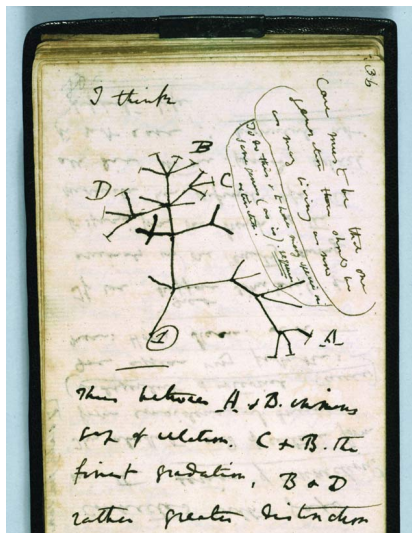 36
I think
B
D
C
case must be that one
generation then should be
as many living as now
To do this & to have many species in
same genus (as is). requires
extinction
1
A
Thus between A & B. immens
gap of relation. C & B. the
finest gradation, B & D
rather greater distinction